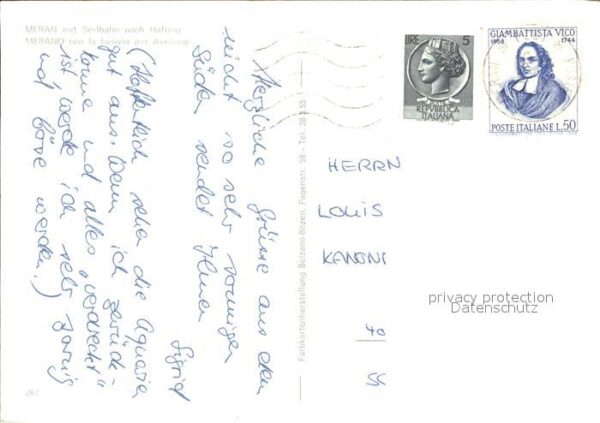 MERAN mit Seilbahn nach Hafling
MERANO con la funivia per Avelengo
Herzliche Grüsse aus dem
nicht so sehr sonnigen
Süden sendet Ihnen
Sigrid
(Hoffentlich sehen die Aquarien
gut aus. Wenn ich zurück-
komme und alles "verdreckt"
ist, werde ich sehr zornig
und böse werden.)
287
Farbkartenherstellung Bolzano-Bozen, Fagenstr. 58 - Tel. 38 3 55
LIRE 5
POSTE
REPVBBLICA
ITALIANA
GIAMBATTISTA VICO
1668 1744
POSTE ITALIANE L.50
HERRN
LOUIS
KANONI
privacy protection
Datenschutz
40
55